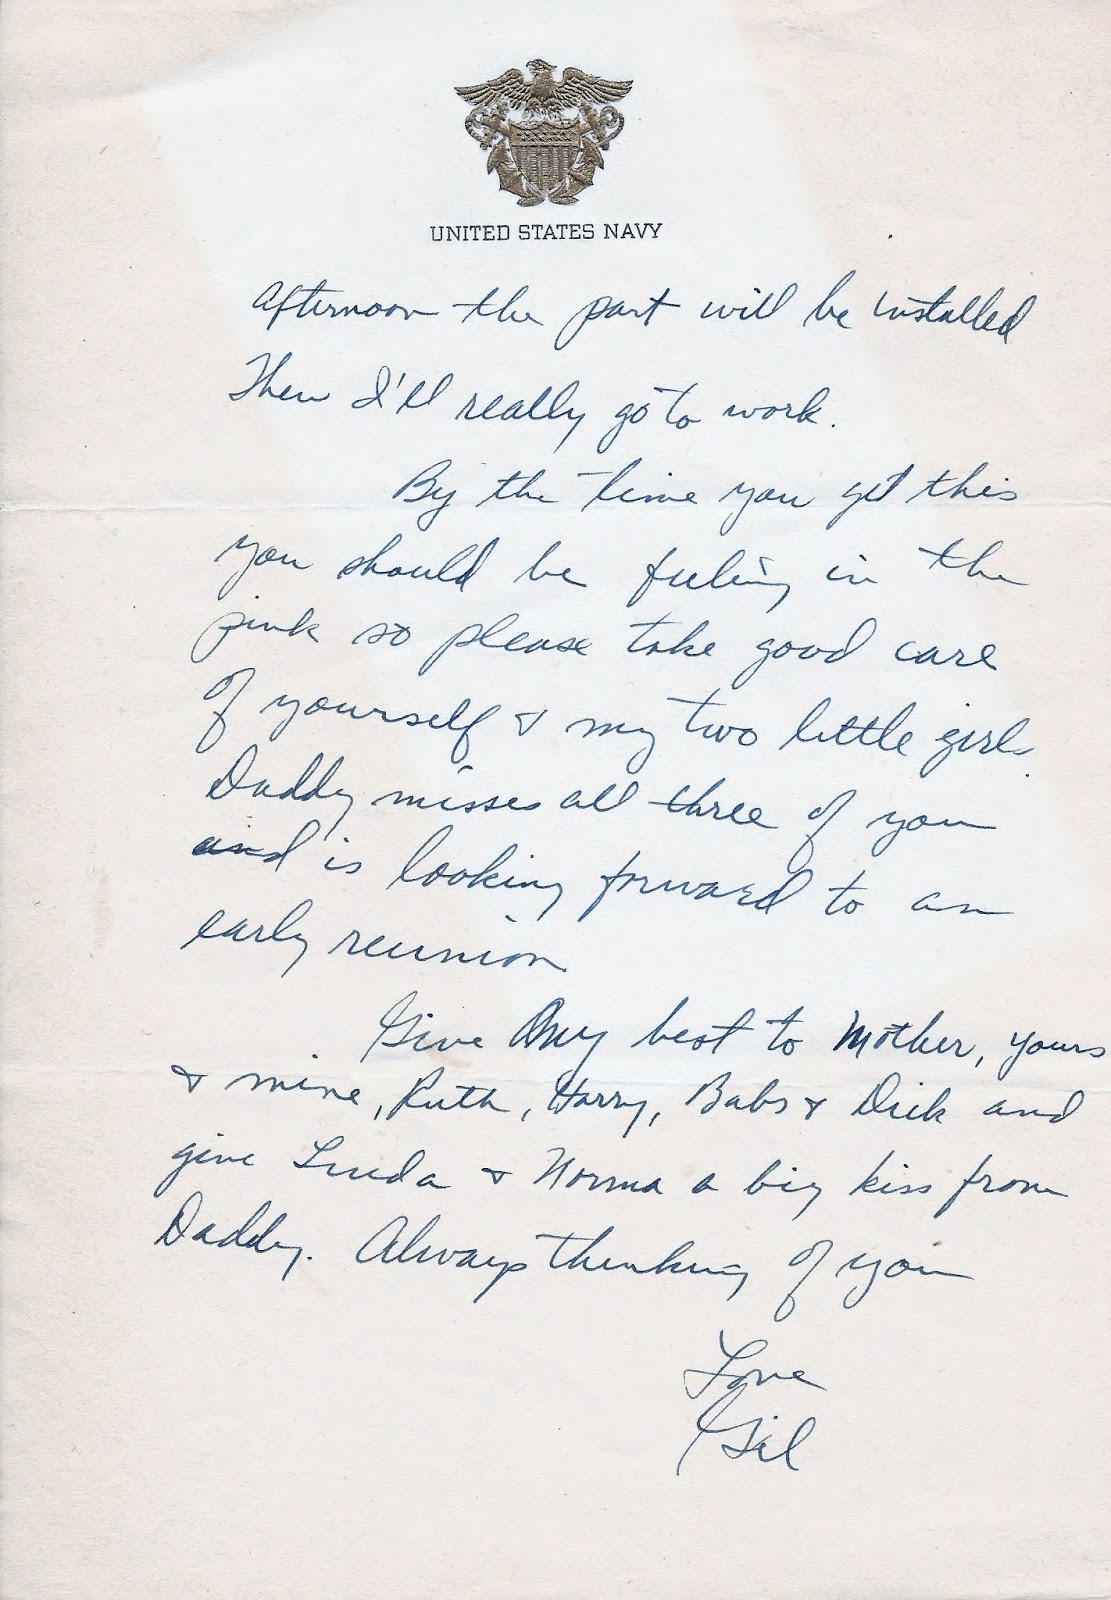 UNITED STATES NAVY
afternoon the part will be installed
Then I'll really go to work.
By the time you get this
you should be feeling in the
pink so please take good care
of yourself & my two little girls
Daddy misses all three of you
and is looking forward to an
early reunion
Give my best to Mother, yours
& mine, Ruth, Harry, Babs & Dick and
give Linda & Norma a big kiss from
Daddy. Always thinking of you
Love
Gil